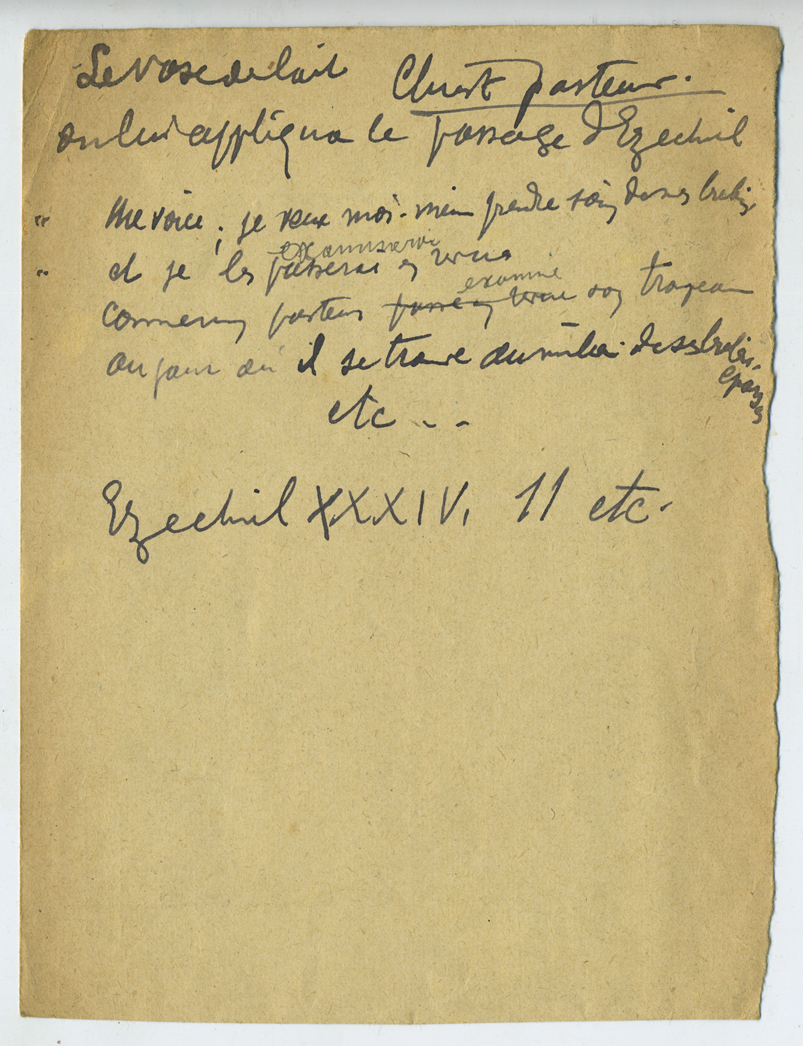 Le vase de lait Christ pasteur.
on lui appliqua le passage d'Ezechiel
" Me voici ; je veux moi-même prendre soin de mes brebis
examinerai
" et je les passerai en revue
examine
comme un pasteur passe en revue son troupeau
au jour où il se trouve au milieu de ses brebis
éparses
etc ..
Ezechiel XXXIV, 11 etc.